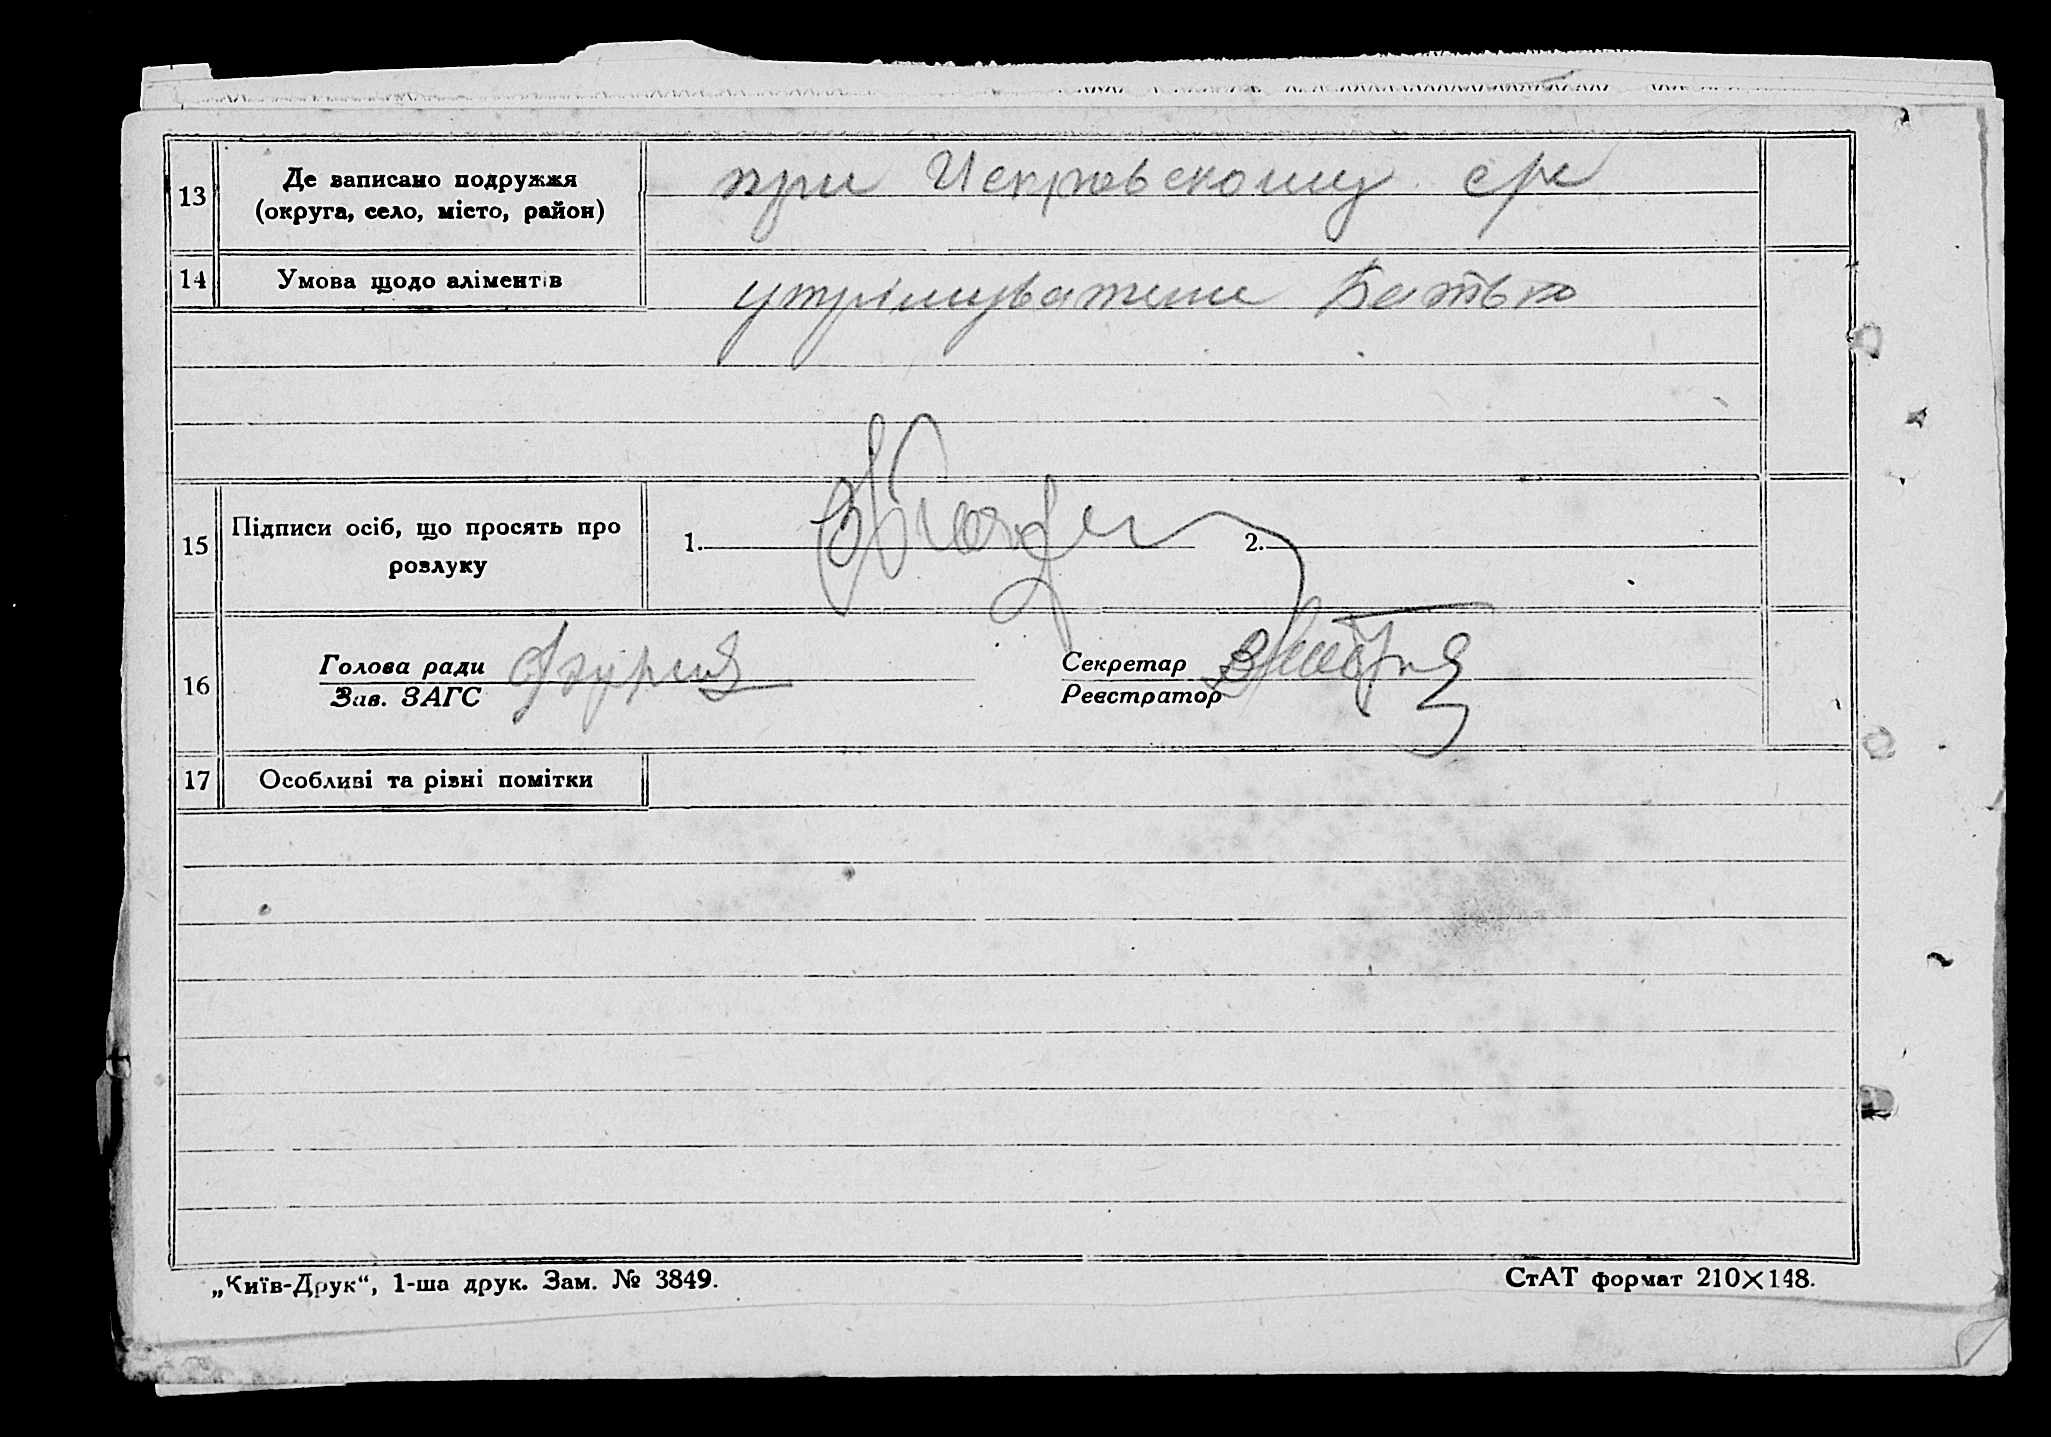 13 Де записано подружжя
(округа, село, місто, район)
при Искровскому с/р
14 Умова щодо аліментів
утрімуватеме Батько
15 Підписи осіб, що просять про
розлуку
1.
2.
16 Голова ради
Зав. ЗАГС
Секретар
Реєстратор
17 Особливі та різні помітки
„Київ-Друк“, 1-ша друк. Зам. № 3849.
СтАТ формат 210×148.